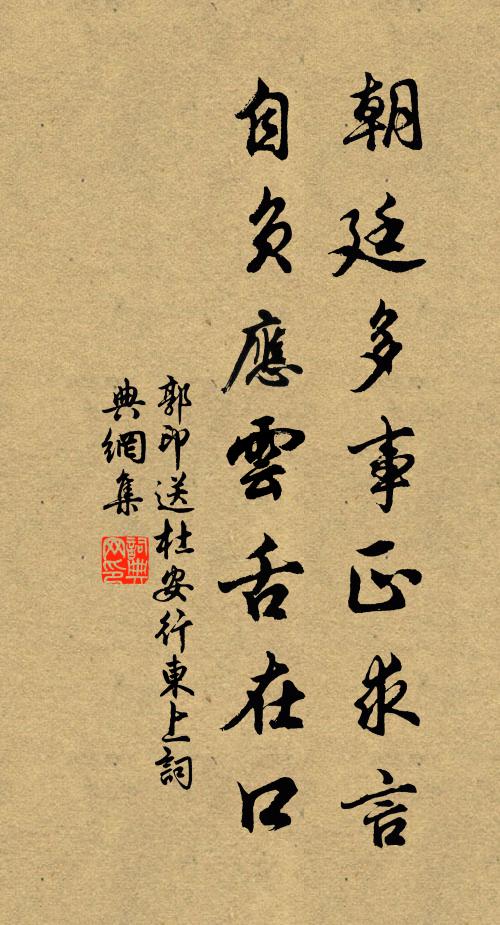 朝廷多事正求言
自負應雲舌在口
郭印送杜安行東上詞
典網集
詞典
网印